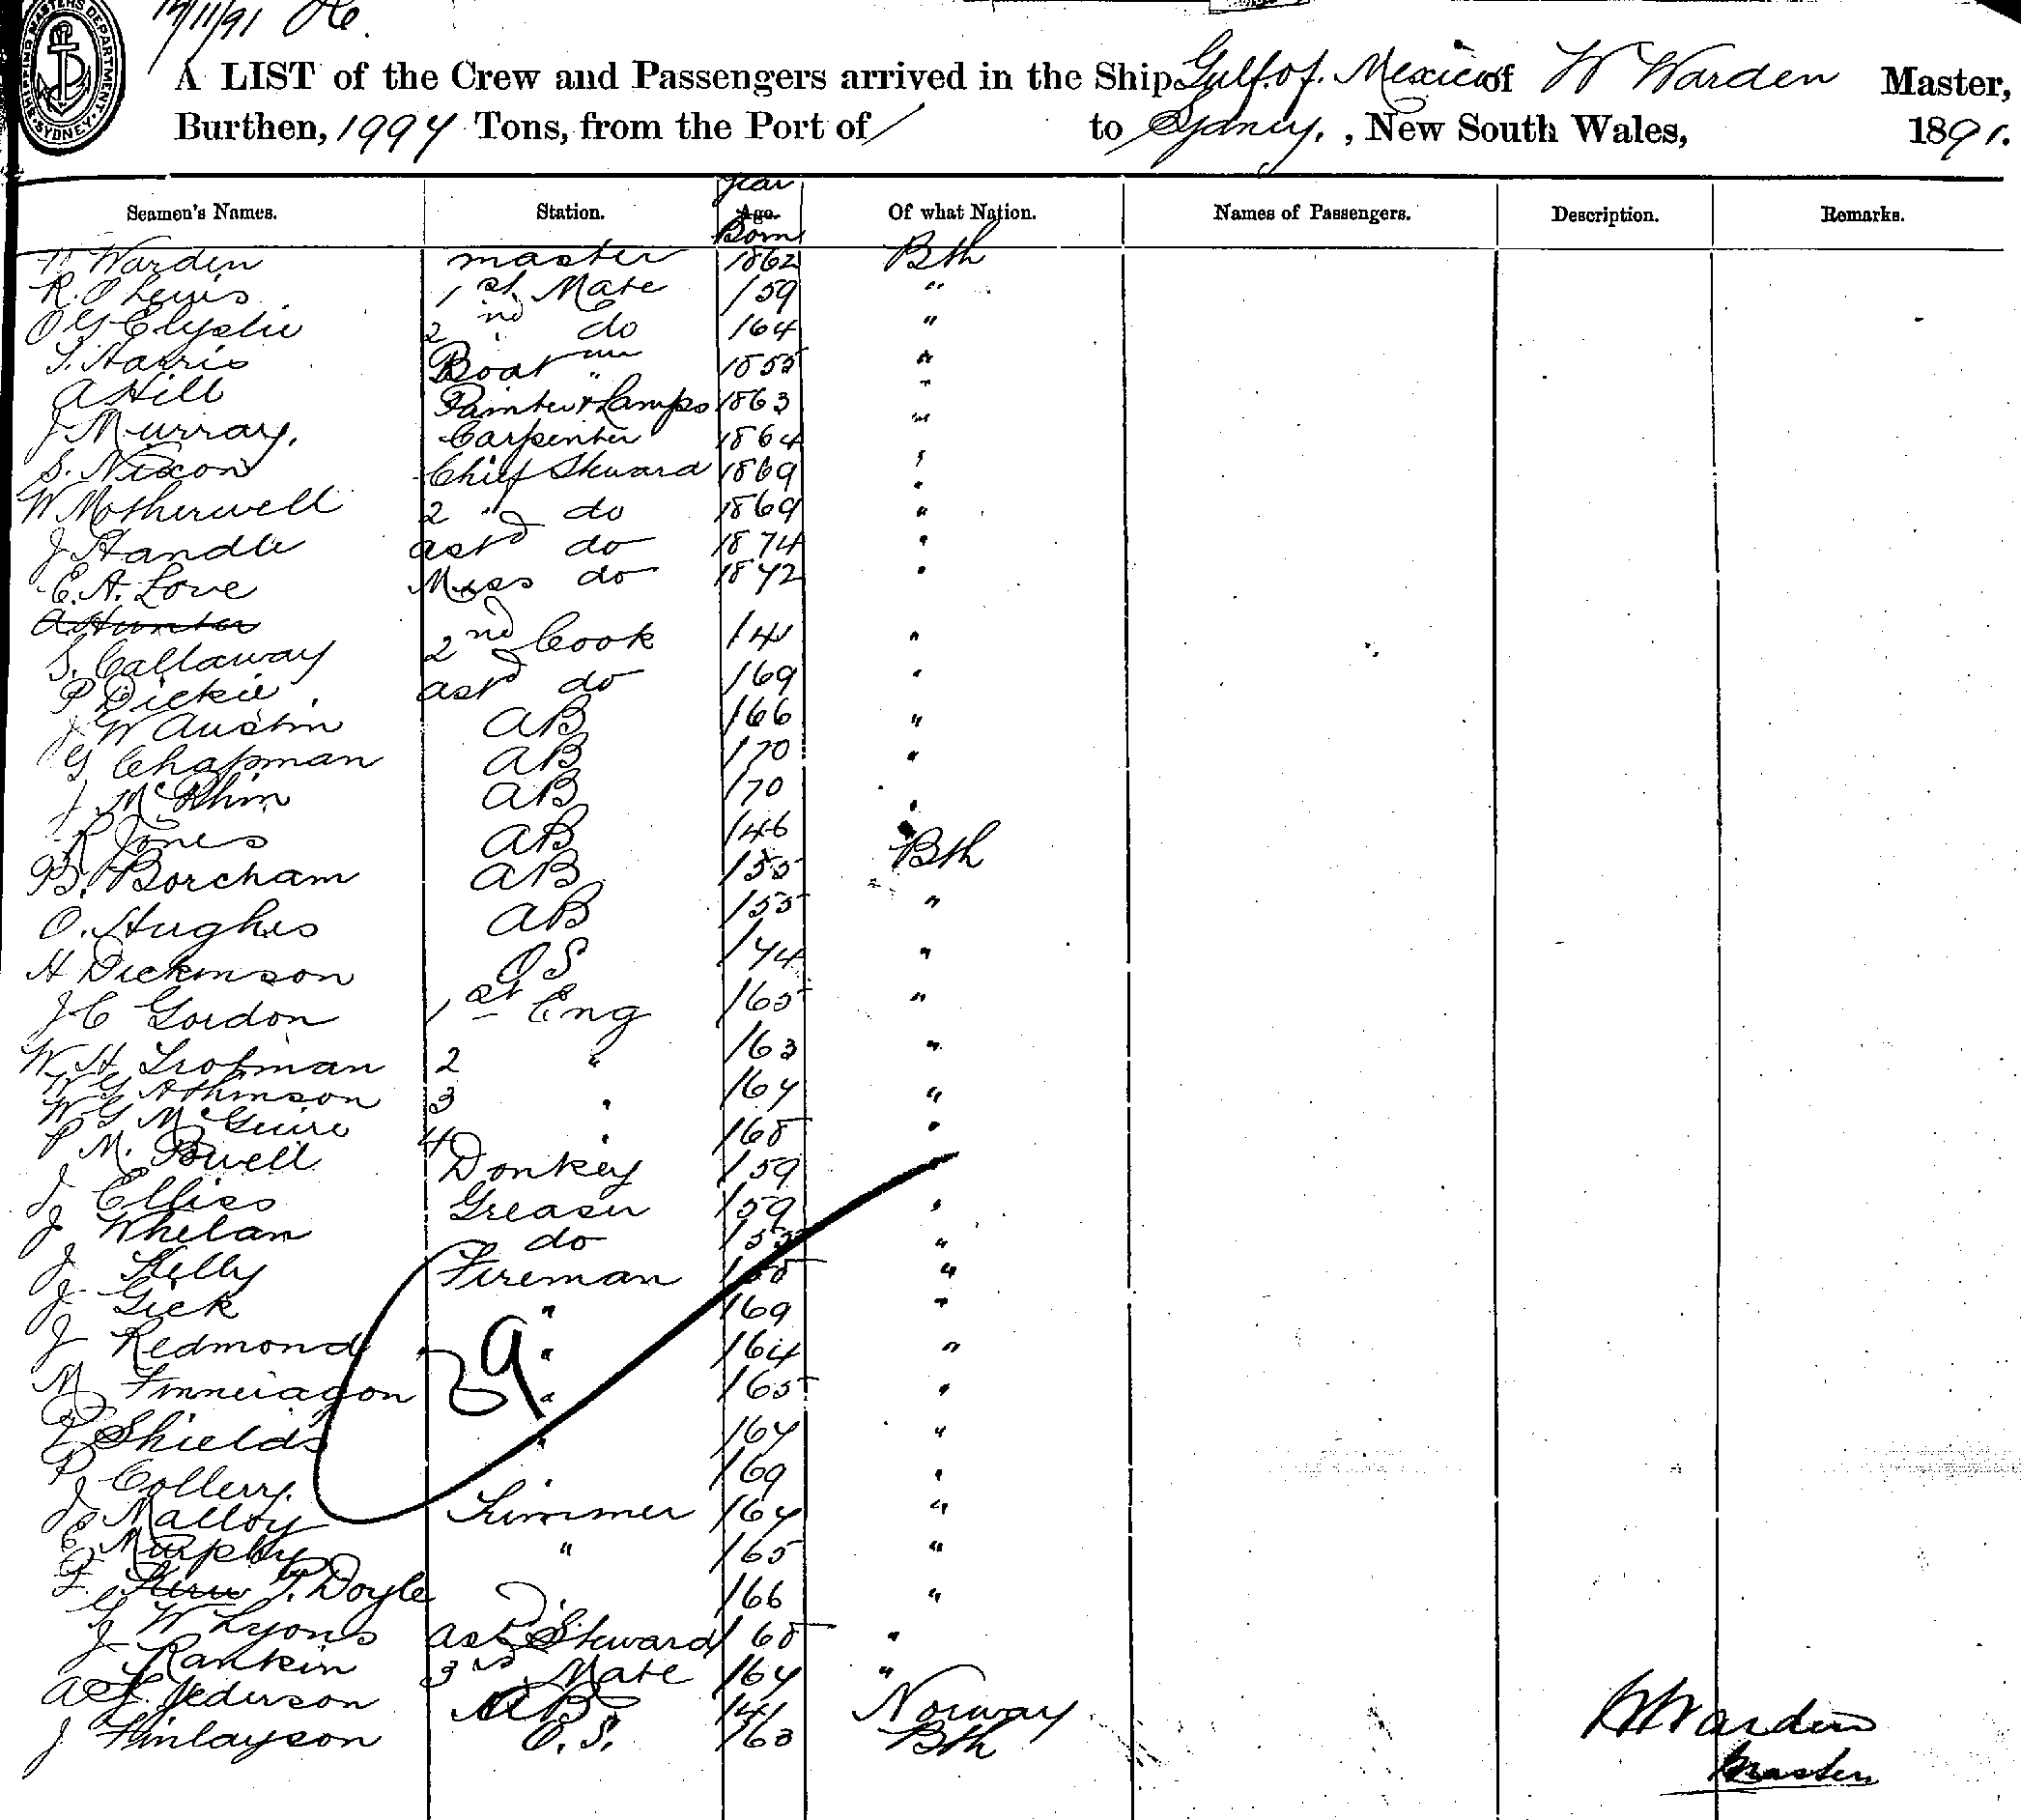 14/11/91
SHIPPING MASTERS DEPARTMENT SYDNEY
A LIST of the Crew and Passengers arrived in the Ship Gulf of Mexico of W Warden Master,
Burthen, 1994 Tons, from the Port of / to Sydney, New South Wales, 1891.
Seamen's Names. Station. Year Age. Born Of what Nation. Names of Passengers. Description. Remarks.
W Warden master 1862 Bth
R. O Lewis 1st Mate /59 "
O G 2nd do /64 "
T. Harris Boat 1855 "
A Hill Painter & Lamps 1863 "
J Murray. Carpenter 1864 "
S. Nixon Chief Steward 1869 "
W Motherwell 2 " do 1869 "
J Handle ast do 1874 "
E. A. Love Mess do 1872 "
A Hunter
S. Callaway 2nd Cook /41 "
P Dickie ast do /69 "
J W Austin AB /66 "
G Chapman AB /70 "
J AB /70 "
R Jones AB /46 "
B. Borcham AB /55 Bth
O. Hughes AB /55 "
H Dickinson OS /74 "
J C Gordon 1st Eng /65 "
W H Trotman 2 " /63 "
W G Atkinson 3 " /64 "
W G McGuire 4 " /68 "
P M. Powell Donkey /59 "
J Elliss Greaser /59 "
J Whelan do /55 "
J Kelly Fireman "
J Gick " /69 "
J Redmond " /64 "
39
M Finneragon " /65 "
P Shields " /64 "
P Collery. " /69 "
J Malloy Trimmer /64 "
E Murphy " /65 "
F P. Doyle " /66 "
G W Lyons ast Steward /68 "
J Rankin 3rd Mate /64 "
A Pederson AB /41 Norway
J Finlayson O.S. /63 Bth
W Warden
Master